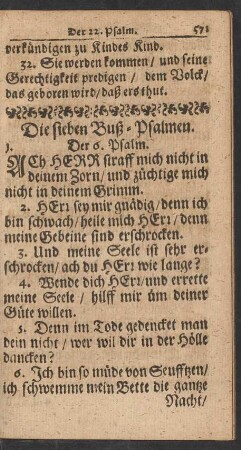 Der 22. Psalm. 571
verkündigen zu Kindes Kind.
32. Sie werden kommen / und seine
Gerechtigkeit predigen / dem Volck /
das geboren wird / daß ers thut.
Die sieben Buß-Psalmen.
1. Der 6. Psalm.
ACh HERR straff mich nicht in
deinem Zorn / und züchtige mich
nicht in deinem Grimm.
2. HErr sey mir gnädig / denn ich
bin schwach / heile mich HErr / denn
meine Gebeine sind erschrocken.
3. Und meine Seele ist sehr er-
schrocken / ach du HErr wie lange?
4. Wende dich HErr / und errette
meine Seele / hilff mir üm deiner
Güte willen.
5. Denn im Tode gedencket man
dein nicht / wer wil dir in der Hölle
dancken?
6. Ich bin so müde von Seufftzen /
ich schwemme mein Bette die gantze
Nacht /